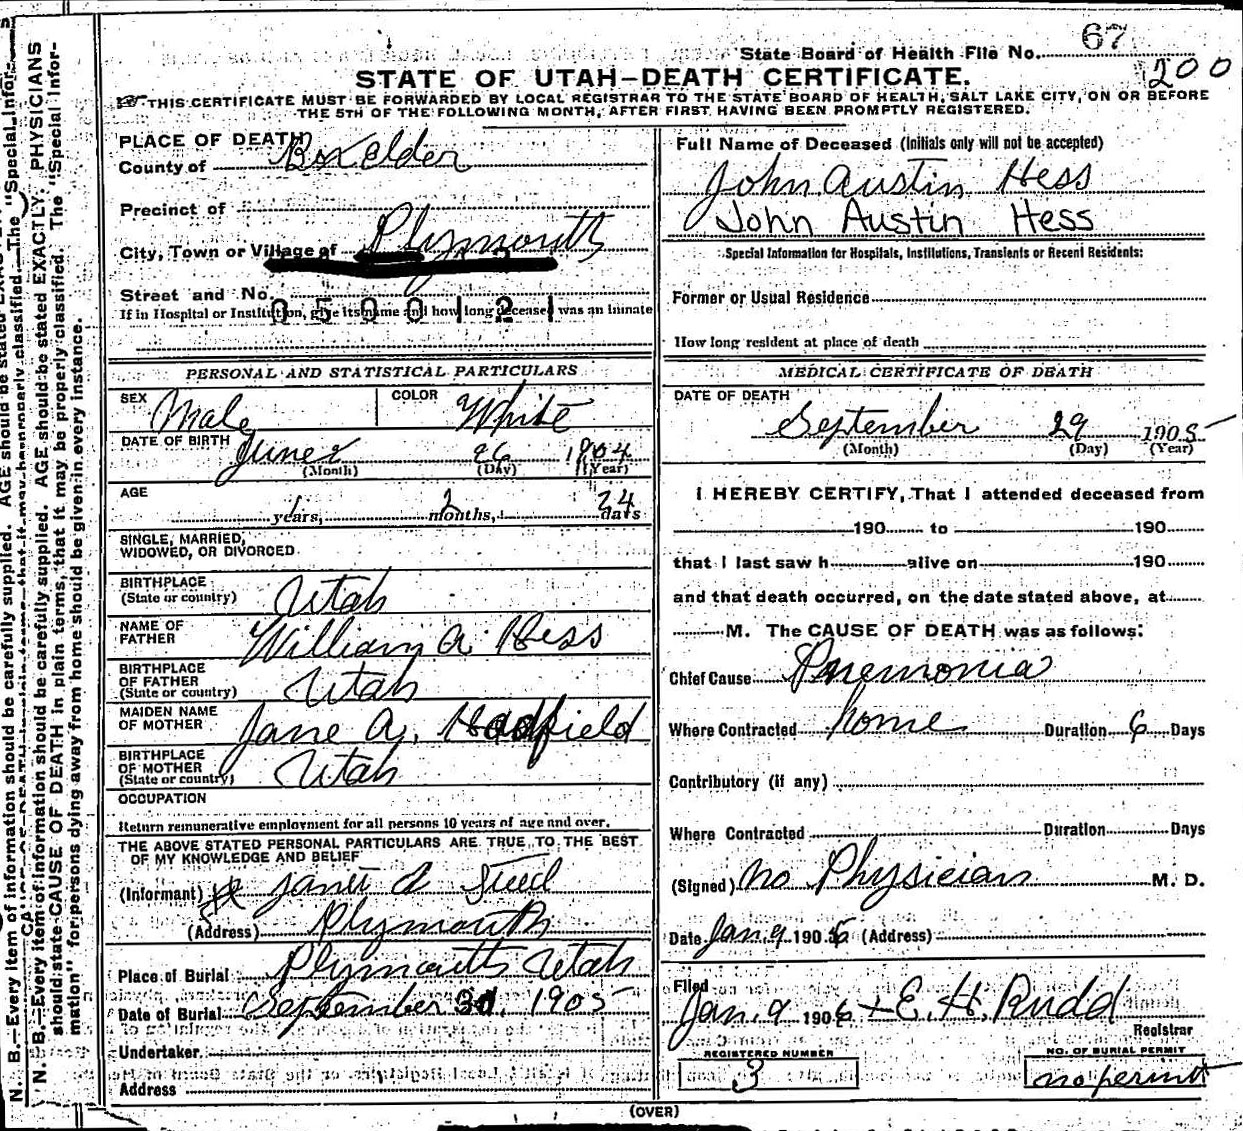 State Board of Health File No. 67
200
STATE OF UTAH—DEATH CERTIFICATE.
THIS CERTIFICATE MUST BE FORWARDED BY LOCAL REGISTRAR TO THE STATE BOARD OF HEALTH, SALT LAKE CITY, ON OR BEFORE
THE 5TH OF THE FOLLOWING MONTH, AFTER FIRST HAVING BEEN PROMPTLY REGISTERED.
PLACE OF DEATH
County of Box elder
Precinct of
City, Town or Village of Plymouth
Street and No.
0500121
If in Hospital or Institution, give its name and how long deceased was an inmate
PERSONAL AND STATISTICAL PARTICULARS
SEX Male COLOR White
DATE OF BIRTH June 26 1904
(Month) (Day) (Year)
AGE
1 years, 2 months, 24 days
SINGLE, MARRIED,
WIDOWED, OR DIVORCED
BIRTHPLACE
(State or country) Utah
NAME OF
FATHER William A. Hess
BIRTHPLACE
OF FATHER
(State or country) Utah
MAIDEN NAME
OF MOTHER Jane A. Hadfield
BIRTHPLACE
OF MOTHER
(State or country) Utah
OCCUPATION
Return remunerative employment for all persons 10 years of age and over.
THE ABOVE STATED PERSONAL PARTICULARS ARE TRUE TO THE BEST
OF MY KNOWLEDGE AND BELIEF
(Informant)
(Address) Plymouth
Place of Burial Plymouth Utah
Date of Burial September 30, 1905
Undertaker
Address
Full Name of Deceased (Initials only will not be accepted)
John Austin Hess
John Austin Hess
Special Information for Hospitals, Institutions, Transients or Recent Residents:
Former or Usual Residence
How long resident at place of death
MEDICAL CERTIFICATE OF DEATH
DATE OF DEATH
September 29 1905
(Month) (Day) (Year)
I HEREBY CERTIFY, That I attended deceased from
190 to 190
that I last saw h alive on 190
and that death occurred, on the date stated above, at
M. The CAUSE OF DEATH was as follows:
Chief Cause Pnemonia
Where Contracted home Duration 6 Days
Contributory (if any)
Where Contracted Duration Days
(Signed) No Physician M. D.
Date Jan. 9 1906 (Address)
Filed
Jan. 9 1906 E. H. Rudd
Registrar
REGISTERED NUMBER
3
NO. OF BURIAL PERMIT
no permit
(OVER)
N. B.—Every item of information should be carefully supplied. AGE should be stated EXACTLY. PHYSICIANS
should state CAUSE OF DEATH in plain terms, that it may be properly classified. The "Special Infor-
mation" for persons dying away from home should be given in every instance.